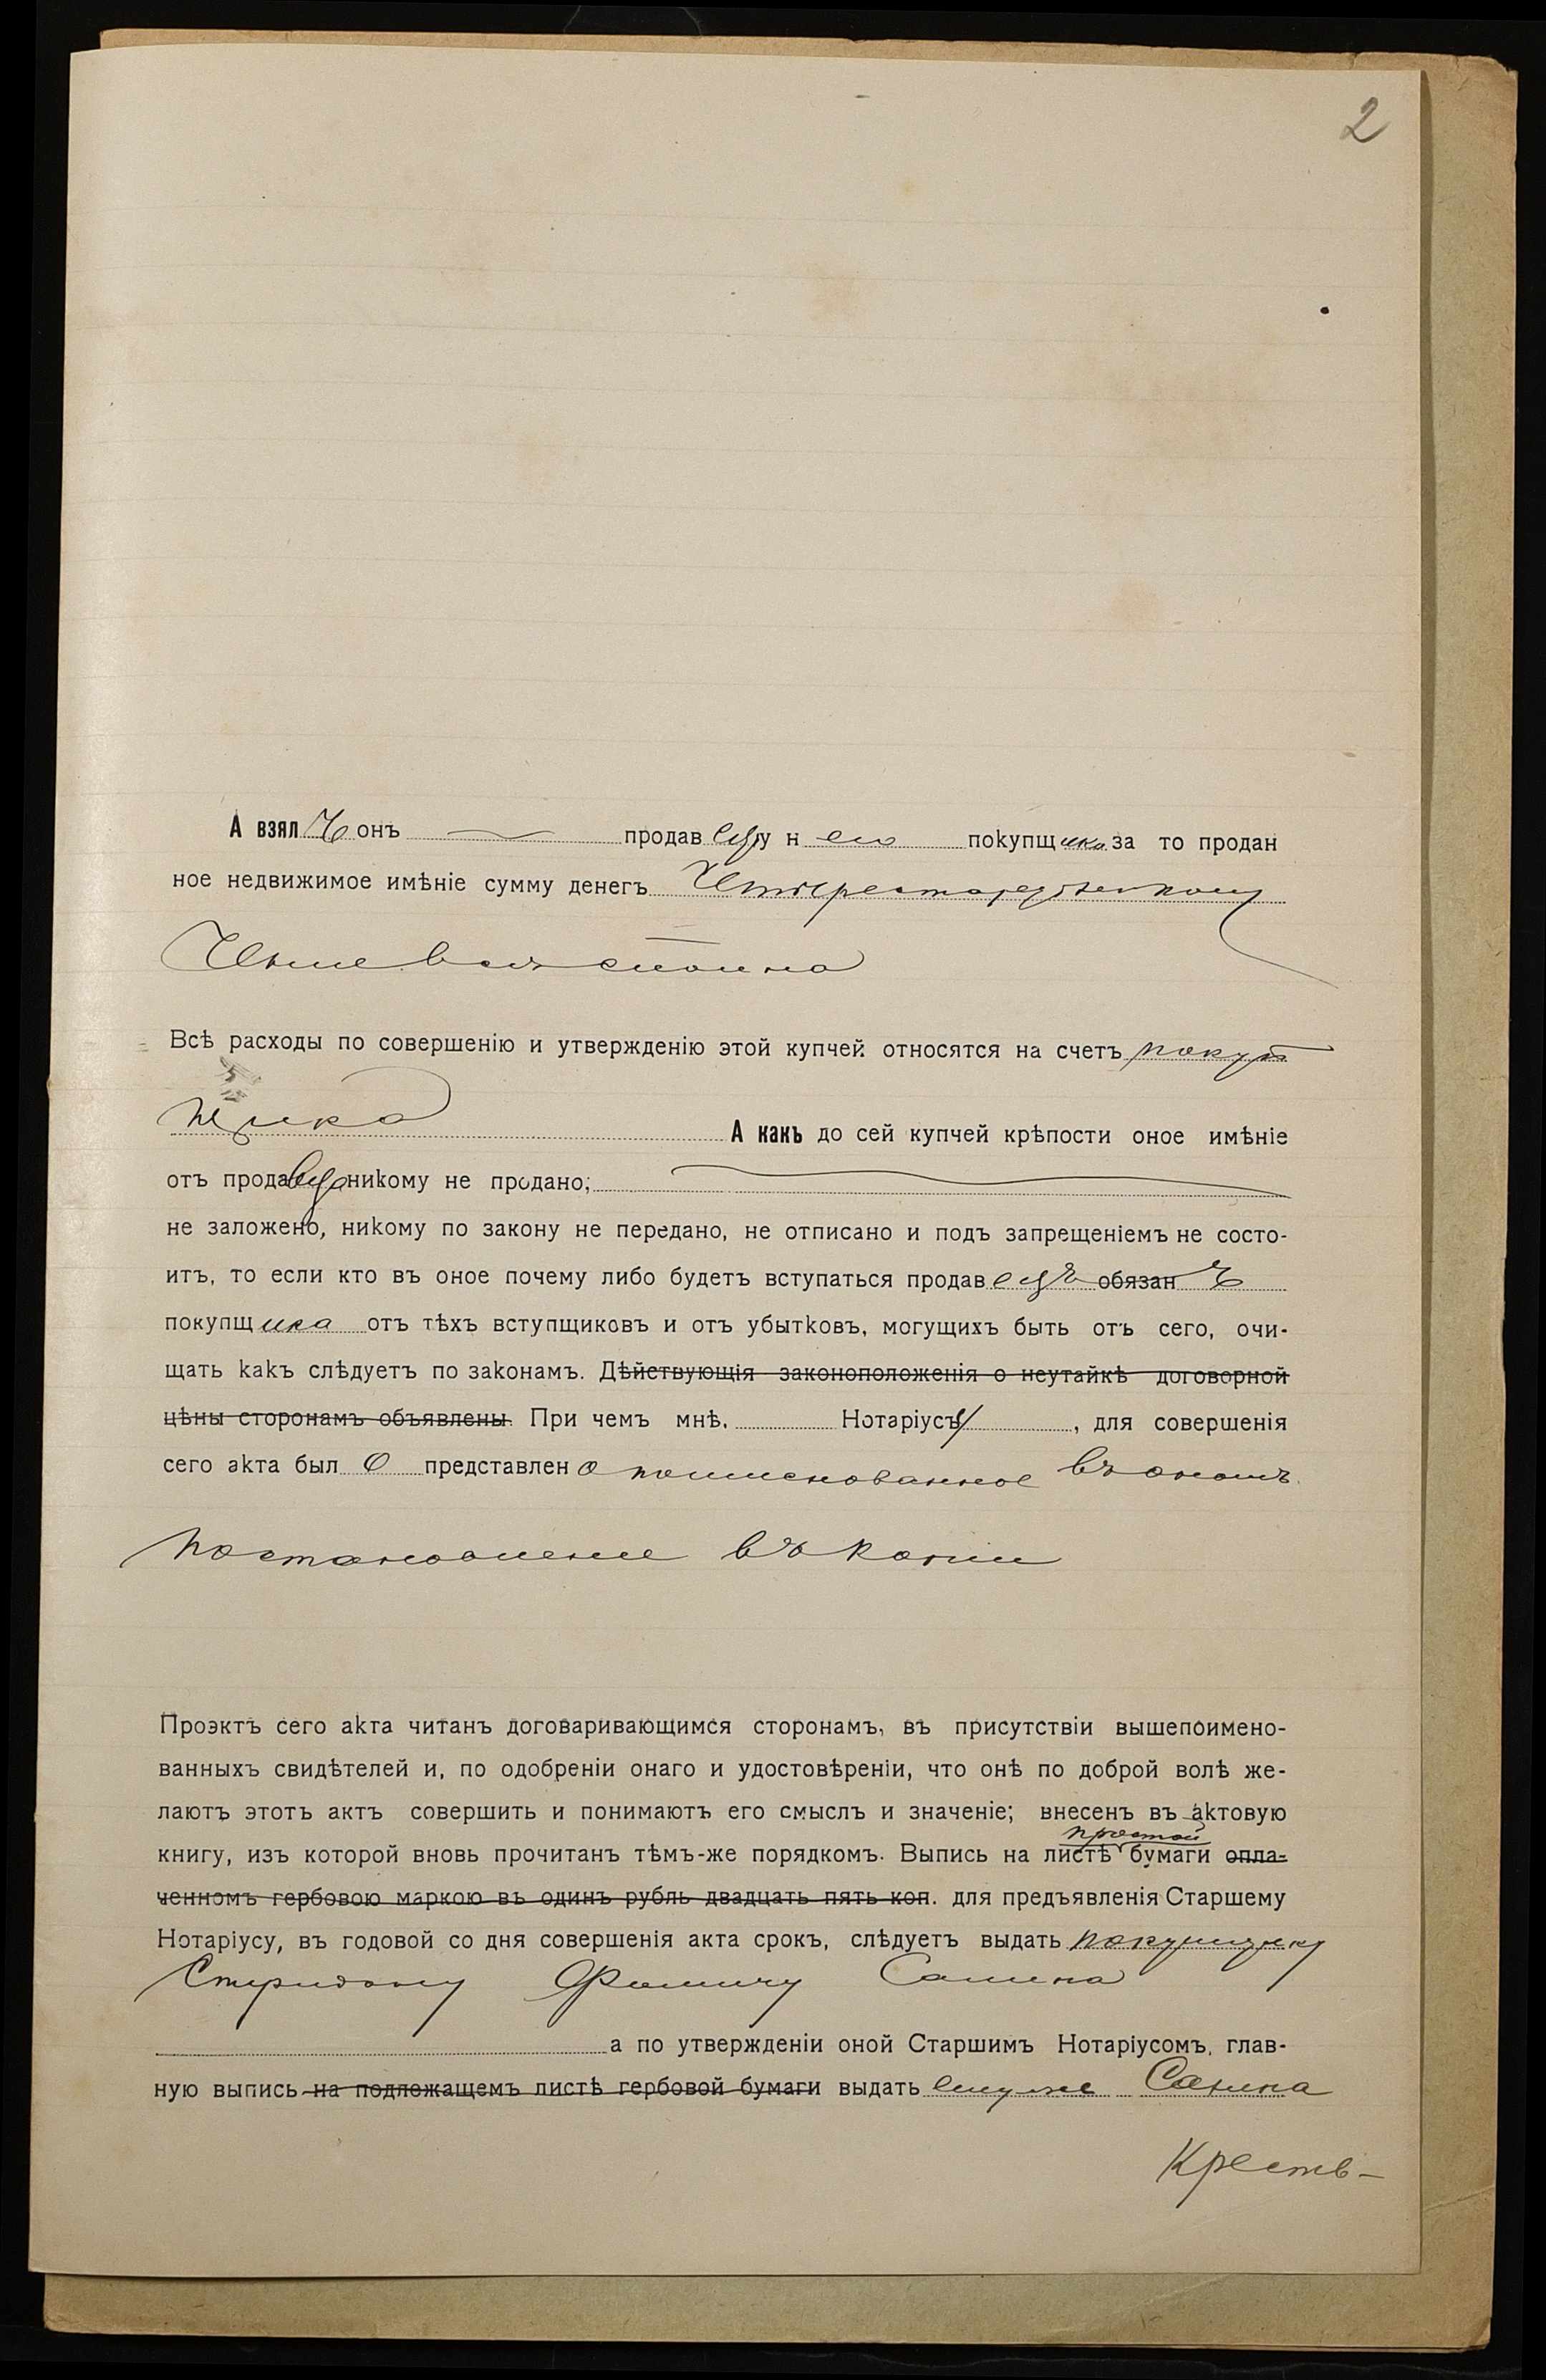 2
А взялъ онъ продавецъ у него покупщика за то продан
ное недвижимое имѣніе сумму денегъ
Всѣ расходы по совершенію и утвержденію этой купчей относятся на счетъ покуп
щика А какъ до сей купчей крѣпости оное имѣніе
отъ продавца никому не продано;
не заложено, никому по закону не передано, не отписано и подъ запрещеніемъ не состо-
итъ, то если кто въ оное почему либо будетъ вступаться продавецъ обязанъ
покупщика отъ тѣхъ вступщиковъ и отъ убытковъ, могущихъ быть отъ сего, очи-
щать какъ слѣдуетъ по законамъ. Дѣйствующія законоположенія о неутайкѣ договорной
цѣны сторонамъ объявлены. При чемъ мнѣ, Нотаріусу, для совершенія
сего акта было представлено поименованное въ ономъ
постановленіе въ копіи
Проэктъ сего акта читанъ договаривающимся сторонамъ, въ присутствіи вышепоимено-
ванныхъ свидѣтелей и, по одобреніи онаго и удостовѣреніи, что онѣ по доброй волѣ же-
лаютъ этотъ актъ совершить и понимаютъ его смыслъ и значеніе; внесенъ въ актовую
простой
книгу, изъ которой вновь прочитанъ тѣмъ-же порядкомъ. Выпись на листѣ бумаги опла-
ченномъ гербовою маркою въ одинъ рубль двадцать пять коп. для предъявленія Старшему
Нотаріусу, въ годовой со дня совершенія акта срокъ, слѣдуетъ выдать покупщику
Спиридону Фомичу
а по утвержденіи оной Старшимъ Нотаріусомъ, глав-
ную выпись на подлежащемъ листѣ гербовой бумаги выдать ему же
Крестья-